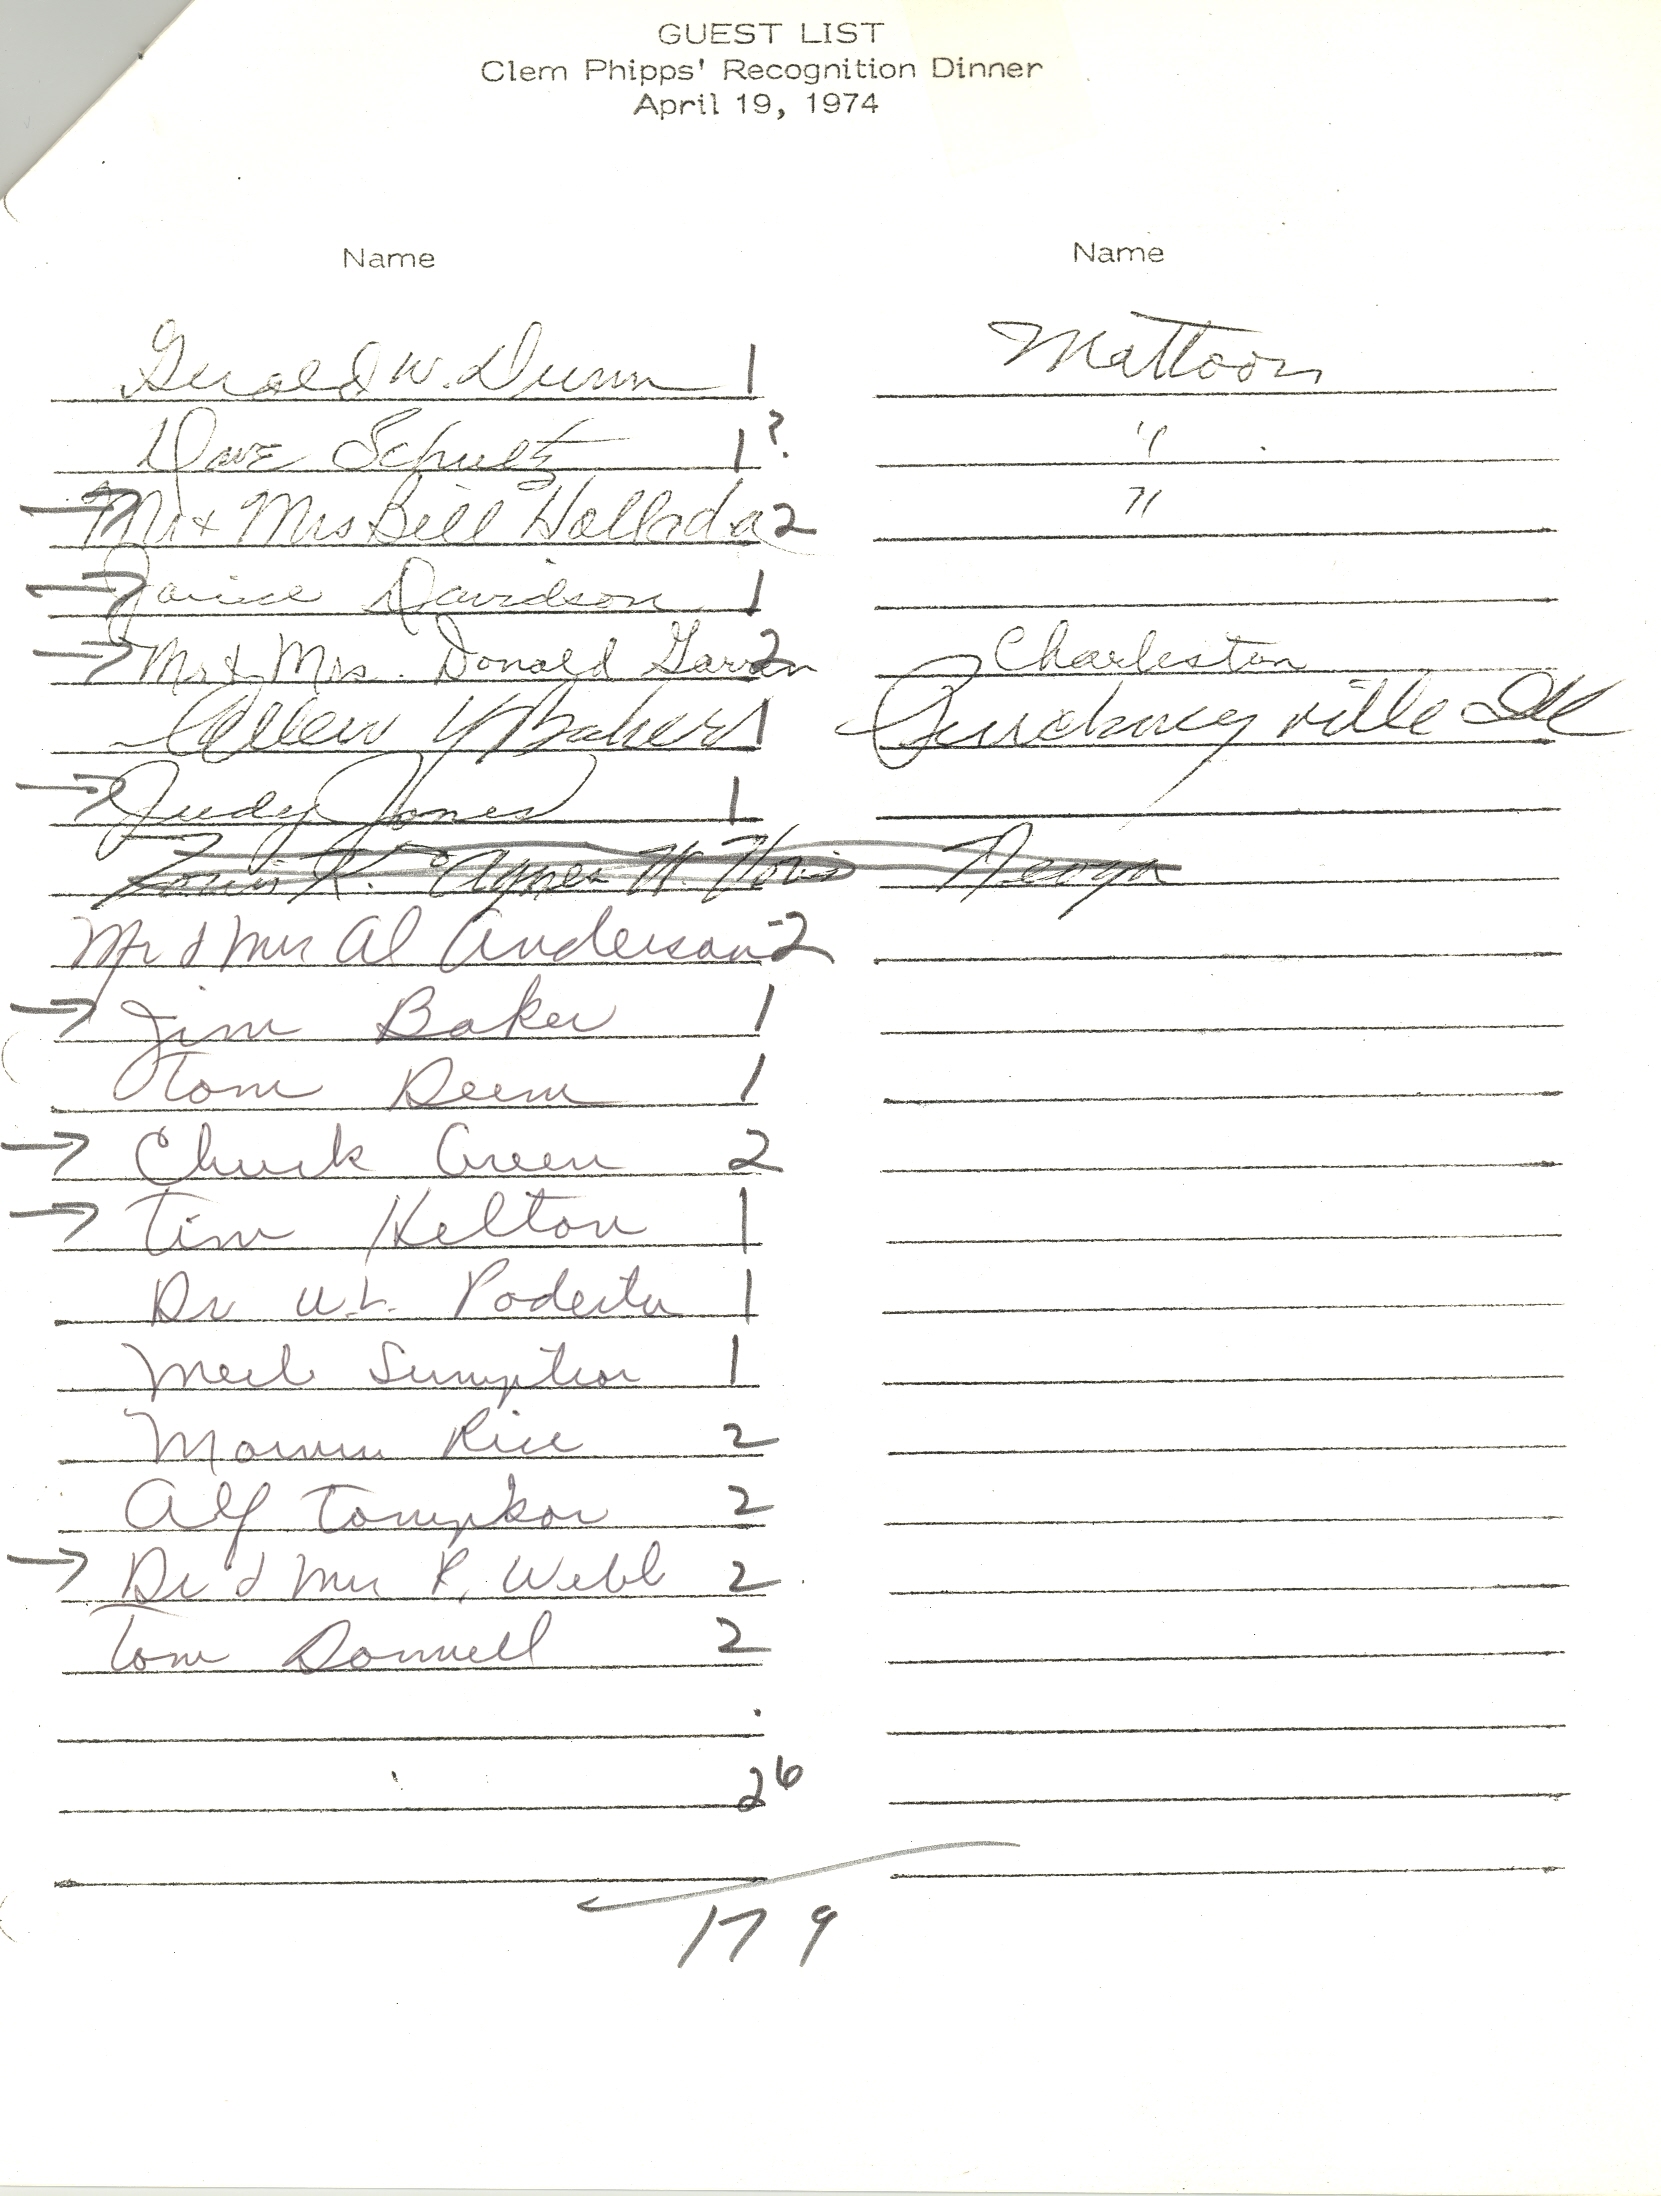 GUEST LIST
Clem Phipps' Recognition Dinner
April 19, 1974
Name Name
Gerald W. Dunn 1 Mattoon
Dave Schultz 1? "
→ Mr & Mrs Bill Hollada 2 "
→ Janice Davidson 1
→ Mr & Mrs. Donald 2 Charleston
Allen Y Baker 1 Pinckneyville Ill
→ Judy Jones 1
R. Agnes H. Neoga
Mr & Mrs Al Anderson 2
→ Jim Baker 1
Tom Deem 1
→ Chuck Green 2
→ Tim Kelton 1
Dr W.L. Podesta 1
Sumption 1
Rice 2
Alf 2
→ Dr & Mrs R. Webb 2
Tom Donnell 2
26
179